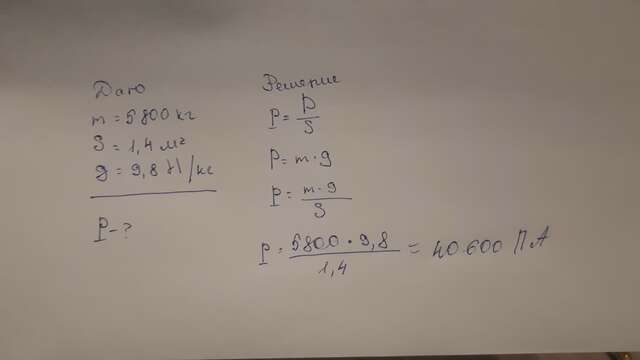 Дано
m = 5800 кг
S = 1,4 м²
g = 9,8 Н/кг
P - ?
Решение
P = P/S
P = m·g
P = m·g/S
P = 5800·9,8/1,4 = 40600 ПА